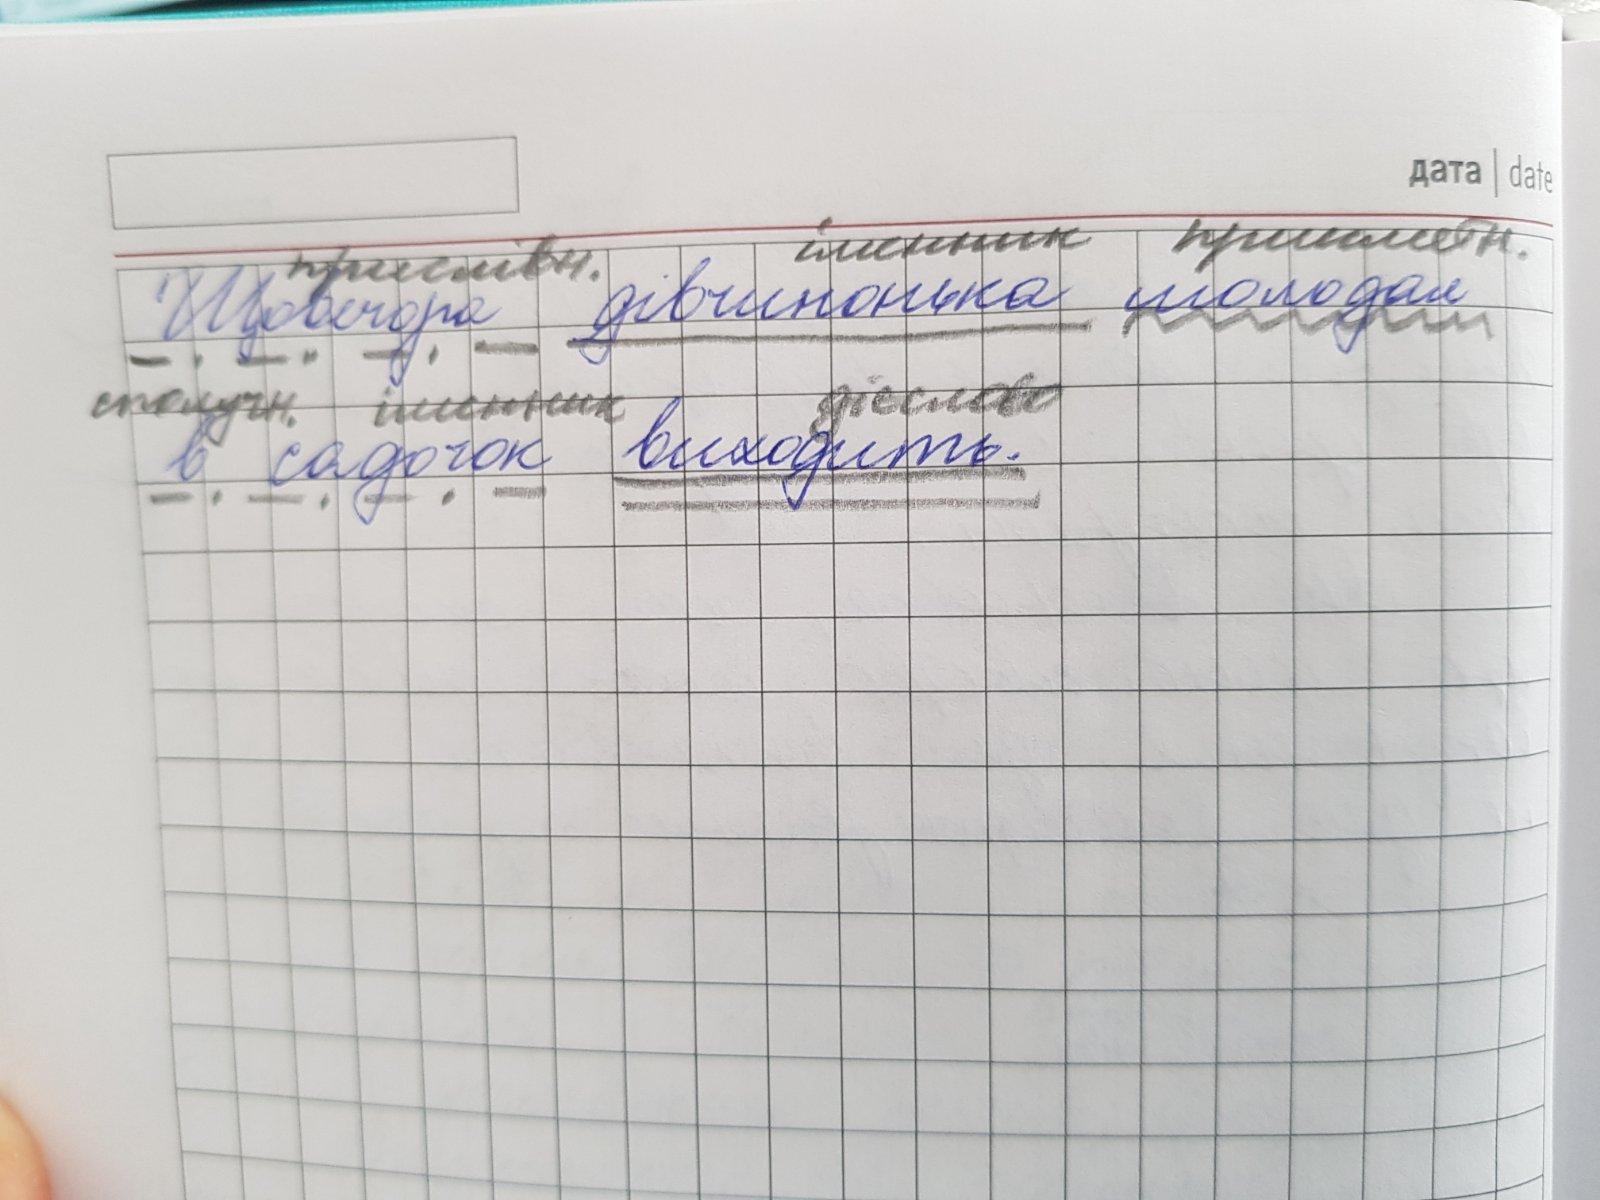 дата | date
прислівн. іменник прикметн.
Щовечора дівчинонька молодая
сполучн. іменник дієслово
в садочок виходить.